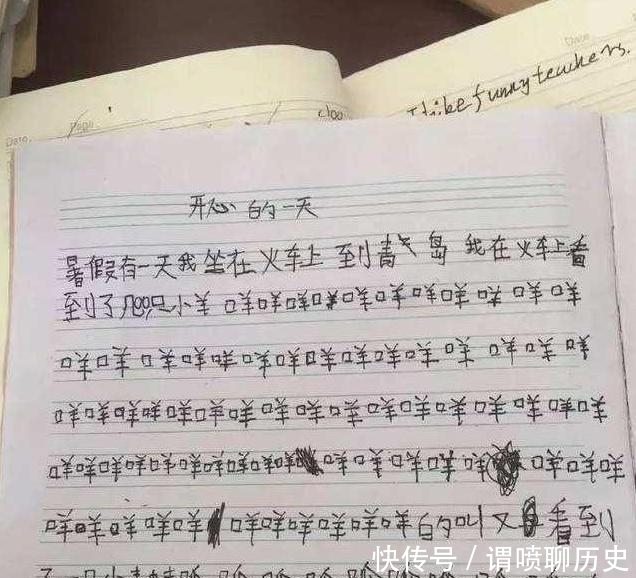 Date.
Page.
cloo
Date
I like funny teachers.
开心的一天
暑假有一天我坐在火车上到青岛 我在火车上看
到了几只小羊 咩咩咩咩咩咩咩咩咩咩咩
咩咩咩咩咩咩咩咩咩咩咩咩咩咩咩
咩咩咩咩咩咩咩咩咩咩咩咩咩咩咩咩咩
咩咩咩咩咩咩咩咩咩咩咩咩咩咩咩咩咩咩
咩咩咩咩咩咩咩咩咩咩咩的叫又看到
快传号/谓喷聊历史